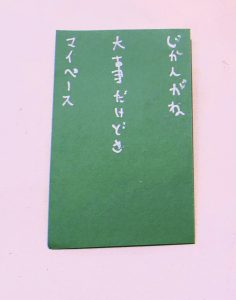 じかんがね
大事だけどさ
マイペース